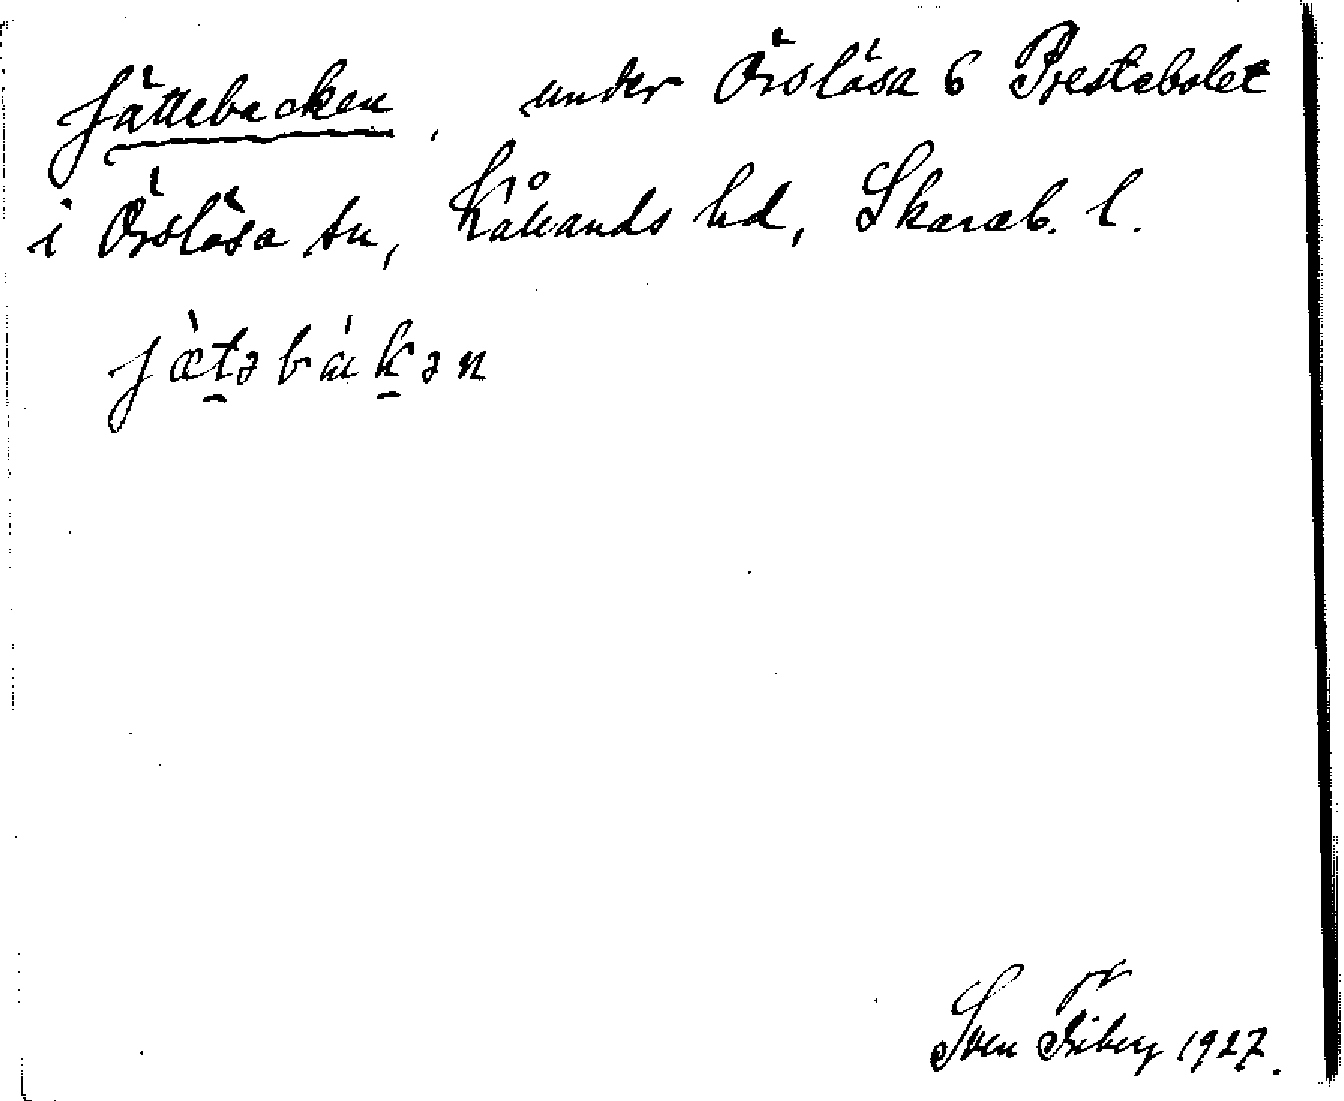 Jättebacken, under Örslösa 6 Prestebolet
i Örslösa sn, Kållands hd, Skarab. l.
jæ̀təbákən
Sven Friberg 1927.